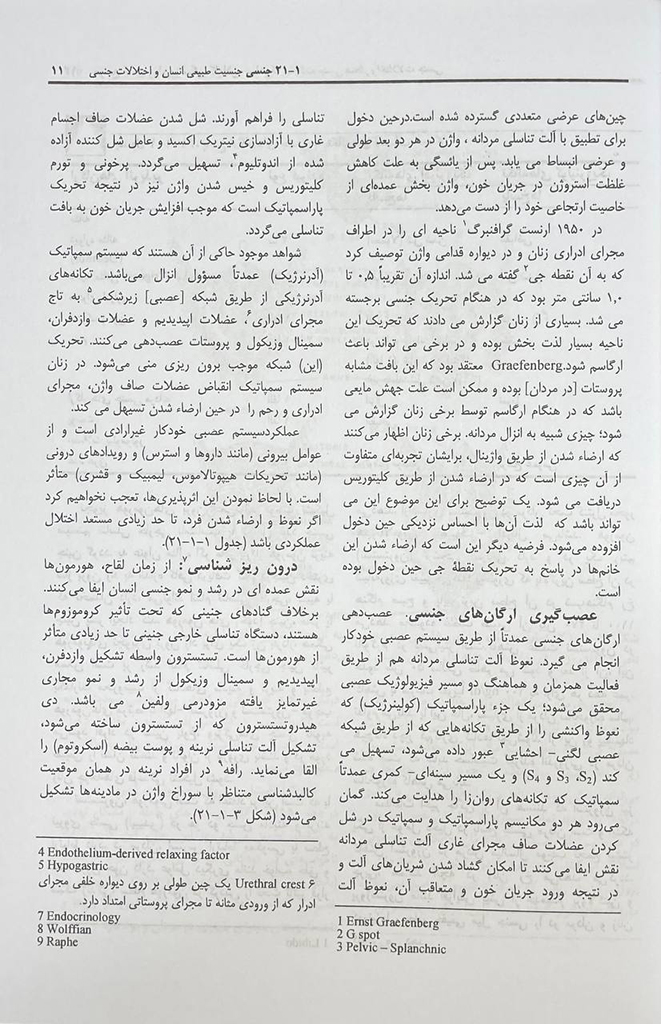 ۱-۲۱ جنسی جنسیت طبیعی انسان و اختلالات جنسی ۱۱
چین‌های عرضی متعددی گسترده شده است.درحین دخول
برای تطبیق با آلت تناسلی مردانه ، واژن در هر دو بعد طولی
و عرضی انبساط می یابد. پس از یائسگی به علت کاهش
غلظت استروژن در جریان خون، واژن بخش عمده‌ای از
خاصیت ارتجاعی خود را از دست می‌دهد.
در ۱۹۵۰ ارنست گرافنبرگ۱ ناحیه ای را در اطراف
مجرای ادراری زنان و در دیواره قدامی واژن توصیف کرد
که به آن نقطه جی۲ گفته می شد. اندازه آن تقریباً ۰,۵ تا
۱,۰ سانتی متر بود که در هنگام تحریک جنسی برجسته
می شد. بسیاری از زنان گزارش می دادند که تحریک این
ناحیه بسیار لذت بخش بوده و در برخی می تواند باعث
ارگاسم شود.Graefenberg معتقد بود که این بافت مشابه
پروستات [در مردان] بوده و ممکن است علت جهش مایعی
باشد که در هنگام ارگاسم توسط برخی زنان گزارش می
شود؛ چیزی شبیه به انزال مردانه. برخی زنان اظهار می‌کنند
که ارضاء شدن از طریق واژینال، برایشان تجربه‌ای متفاوت
از آن چیزی است که در ارضاء شدن از طریق کلیتوریس
دریافت می شود. یک توضیح برای این موضوع این می
تواند باشد که لذت آن‌ها با احساس نزدیکی حین دخول
افزوده می‌شود. فرضیه دیگر این است که ارضاء شدن این
خانم‌ها در پاسخ به تحریک نقطهٔ جی حین دخول بوده
است.
عصب‌گیری ارگان‌های جنسی. عصب‌دهی
ارگان‌های جنسی عمدتاً از طریق سیستم عصبی خودکار
انجام می گیرد. نعوظ آلت تناسلی مردانه هم از طریق
فعالیت همزمان و هماهنگ دو مسیر فیزیولوژیک عصبی
محقق می‌شود؛ یک جزء پاراسمپاتیک (کولینرژیک) که
نعوظ واکنشی را از طریق تکانه‌هایی که از طریق شبکه
عصبی لگنی- احشایی۳ عبور داده می‌شود، تسهیل می
کند (S2، S3 و S4) و یک مسیر سینه‌ای- کمری عمدتاً
سمپاتیک که تکانه‌های روان‌زا را هدایت می‌کند. گمان
می‌رود هر دو مکانیسم پاراسمپاتیک و سمپاتیک در شل
کردن عضلات صاف مجرای غاری آلت تناسلی مردانه
نقش ایفا می‌کنند تا امکان گشاد شدن شریان‌های آلت و
در نتیجه ورود جریان خون و متعاقب آن، نعوظ آلت
1 Ernst Graefenberg
2 G spot
3 Pelvic – Splanchnic
تناسلی را فراهم آورند. شل شدن عضلات صاف اجسام
غاری با آزادسازی نیتریک اکسید و عامل شل کننده آزاده
شده از اندوتلیوم۴، تسهیل می‌گردد. پرخونی و تورم
کلیتوریس و خیس شدن واژن نیز در نتیجه تحریک
پاراسمپاتیک است که موجب افزایش جریان خون به بافت
تناسلی می‌گردد.
شواهد موجود حاکی از آن هستند که سیستم سمپاتیک
(آدرنرژیک) عمدتاً مسؤول انزال می‌باشد. تکانه‌های
آدرنرژیکی از طریق شبکه [عصبی] زیرشکمی۵ به تاج
مجرای ادراری۶، عضلات اپیدیدیم و عضلات وازدفران،
سمینال وزیکول و پروستات عصب‌دهی می‌کنند. تحریک
(این) شبکه موجب برون ریزی منی می‌شود. در زنان
سیستم سمپاتیک انقباض عضلات صاف واژن، مجرای
ادراری و رحم را در حین ارضاء شدن تسیهل می کند.
عملکردسیستم عصبی خودکار غیرارادی است و از
عوامل بیرونی (مانند داروها و استرس) و رویدادهای درونی
(مانند تحریکات هیپوتالاموس، لیمبیک و قشری) متأثر
است. با لحاظ نمودن این اثرپذیری‌ها، تعجب نخواهیم کرد
اگر نعوظ و ارضاء شدن فرد، تا حد زیادی مستعد اختلال
عملکردی باشد (جدول ۱-۱-۲۱).
درون ریز شناسی۷: از زمان لقاح، هورمون‌ها
نقش عمده ای در رشد و نمو جنسی انسان ایفا می‌کنند.
برخلاف گنادهای جنینی که تحت تأثیر کروموزوم‌ها
هستند، دستگاه تناسلی خارجی جنینی تا حد زیادی متأثر
از هورمون‌ها است. تستسترون واسطه تشکیل وازدفرن،
اپیدیدیم و سمینال وزیکول از رشد و نمو مجاری
غیرتمایز یافته مزودرمی ولفین۸ می باشد. دی
هیدروتستسترون که از تستسترون ساخته می‌شود،
تشکیل آلت تناسلی نرینه و پوست بیضه (اسکروتوم) را
القا می‌نماید. رافه۹ در افراد نرینه در همان موقعیت
کالبدشناسی متناظر با سوراخ واژن در مادینه‌ها تشکیل
می‌شود (شکل ۳-۱-۲۱).
4 Endothelium-derived relaxing factor
5 Hypogastric
۶ Urethral crest یک چین طولی بر روی دیواره خلفی مجرای
ادرار که از ورودی مثانه تا مجرای پروستاتی امتداد دارد.
7 Endocrinology
8 Wolffian
9 Raphe